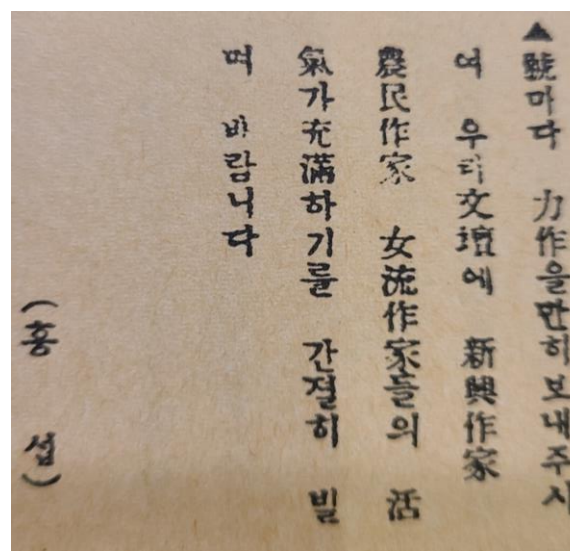 ▲號마다 力作을만히보내주시
여 우리文壇에 新興作家
農民作家 女流作家들의 活
氣가充滿하기를 간절히 빌
며 바람니다
(홍 섭)